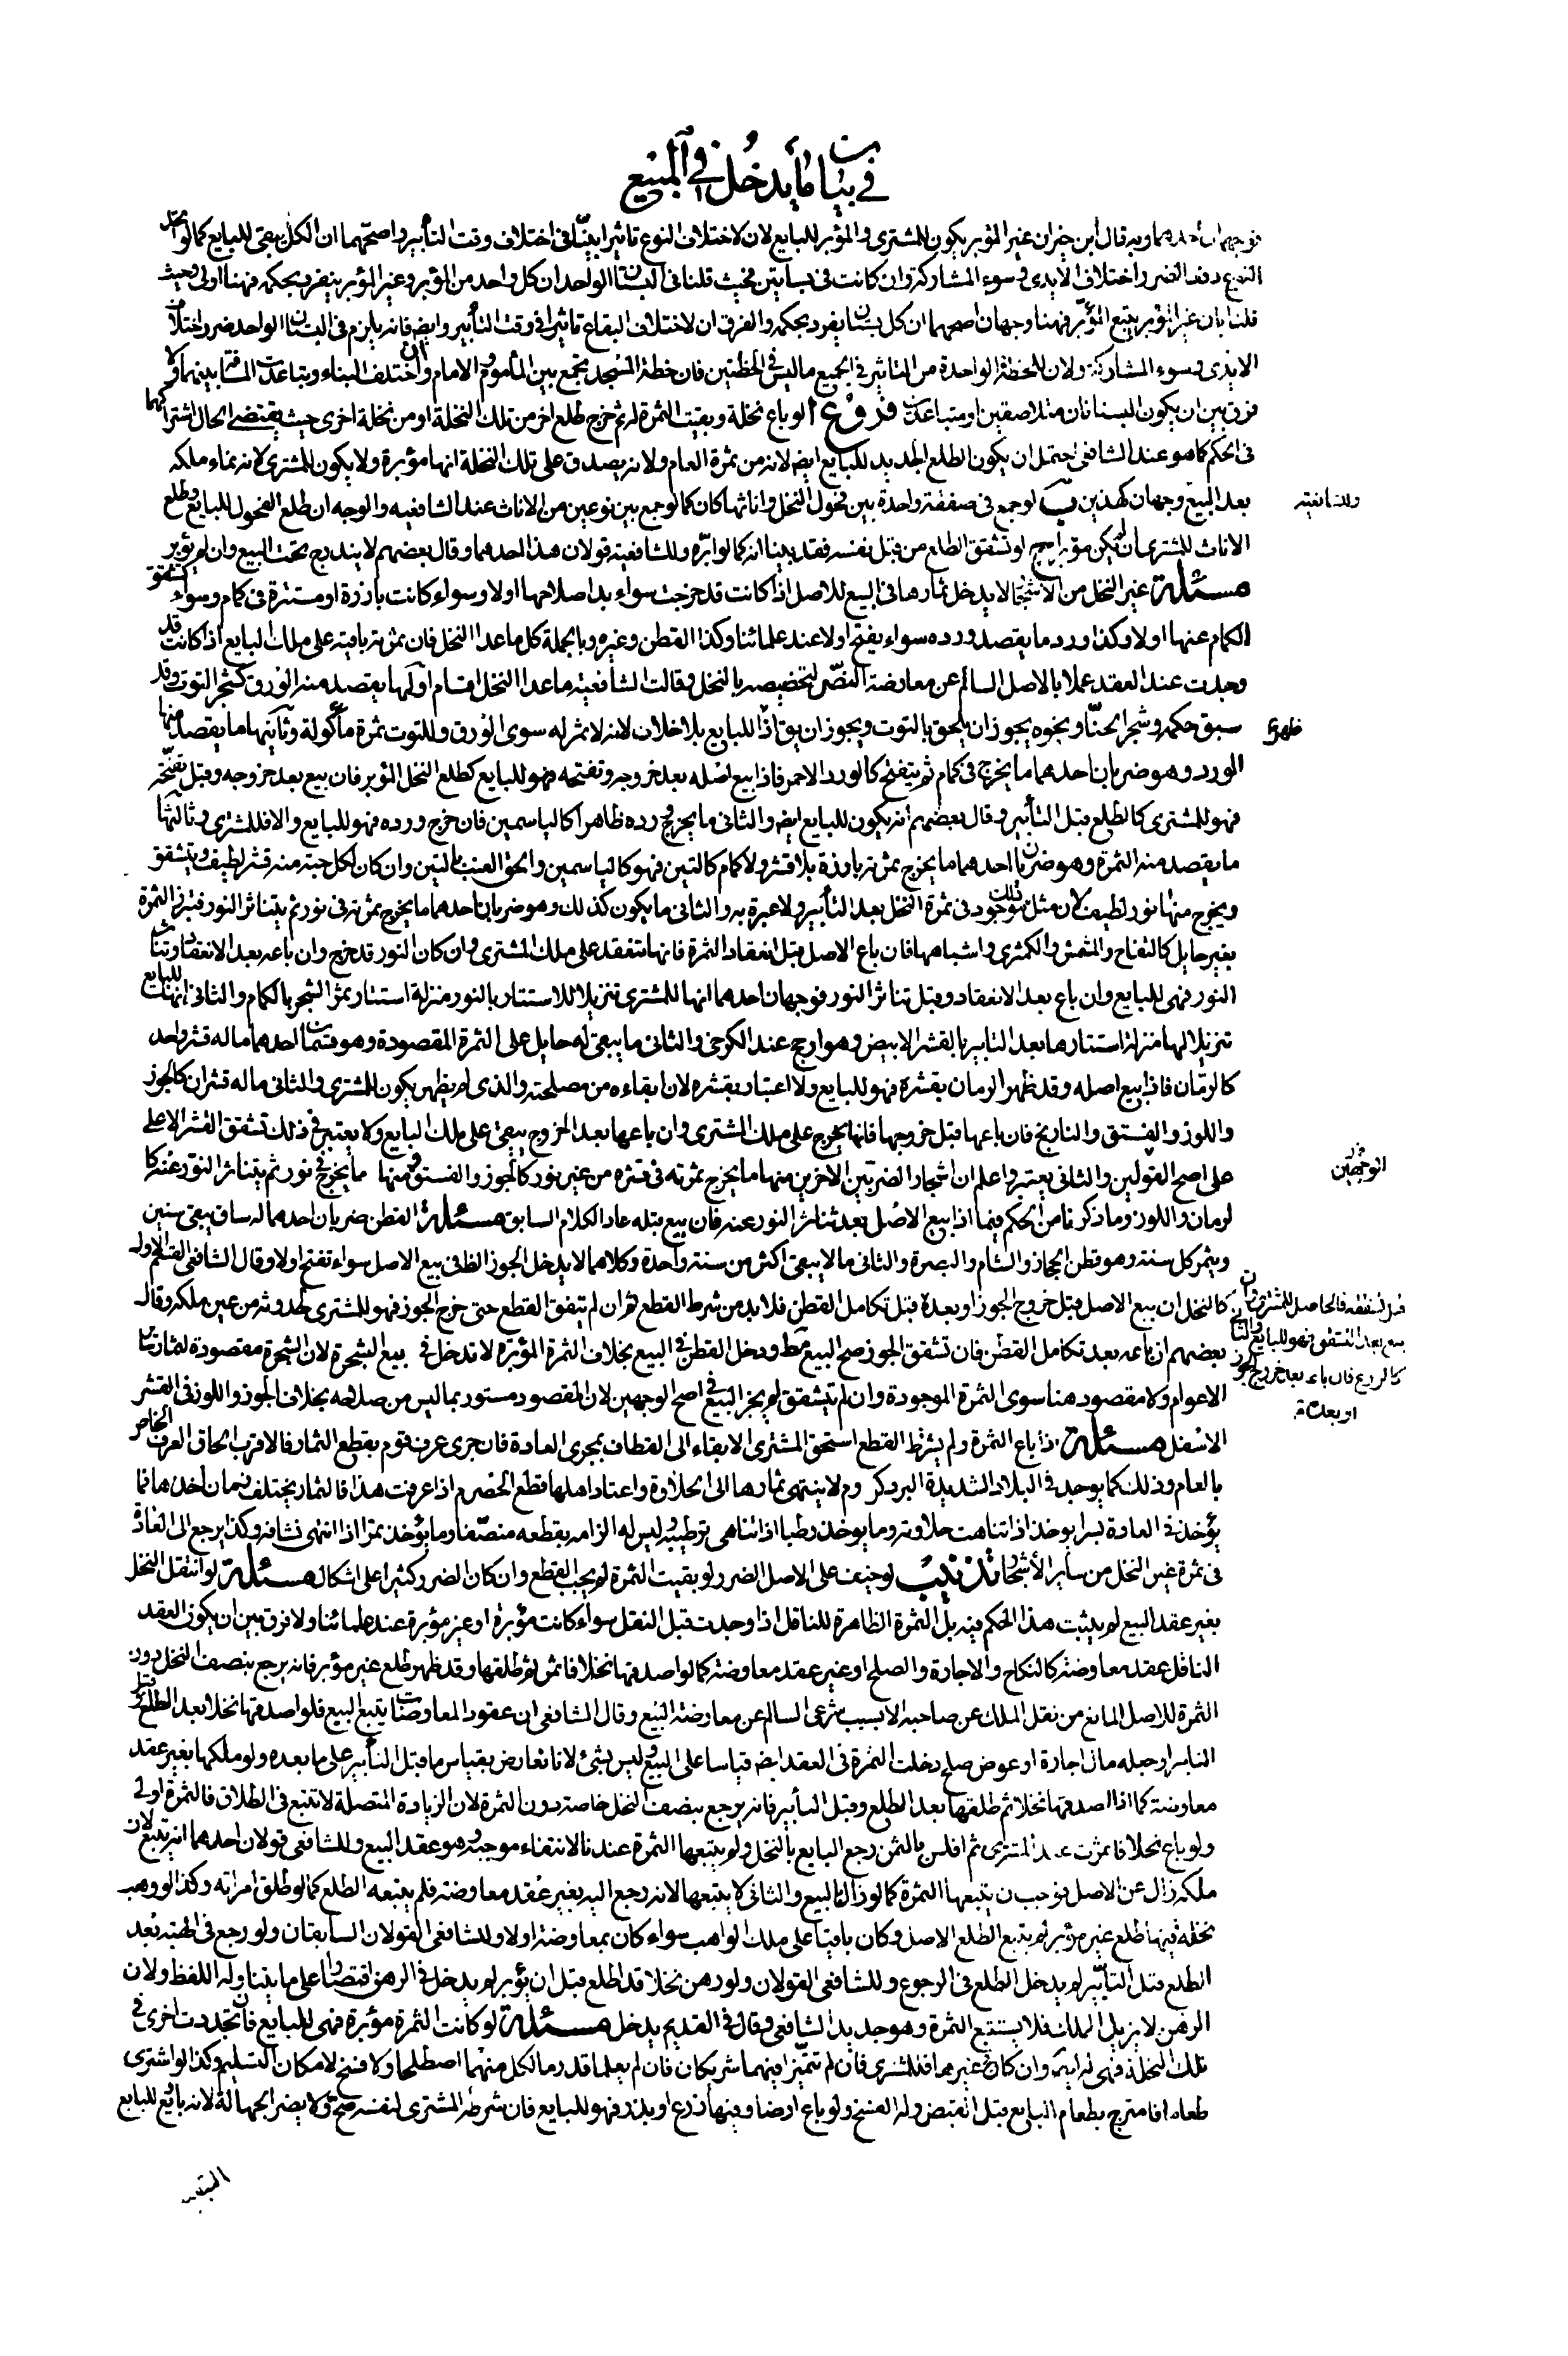 في بيان ما يدخل في المبيع
فوجهان احدهما وبه قال ابن خيران غير المؤبر يكون للمشترى والمؤبر للبايع لان لاختلاف النوع تاثيرا بيّنا في اختلاف وقت التأبير واصحّهما ان الكل يبقى للبايع كما لو اتحد
النوع دفعا لضرر اختلاف الايدى وسوء المشاركة وان كانت في بساتين فحيث قلنا في البستان الواحد ان كل واحد من المؤبر وغير المؤبر ينفرد بحكمه فههنا اولى وحيث
قلنا بان غير المؤبر يتبع المؤبّر فههنا وجهان اصحهما ان كل بستان يفرد بحكمه والفرق ان لاختلاف البقاع تاثيرا في وقت التأبير وايضا فانه يلزم في البستان الواحد ضرر اختلاف
الايدى وسوء المشاركة ولان للخطة الواحدة من التاثير في الجميع ما ليس في الخطتين فان خطة المسجد تجمع بين المأموم والامام وان اختلف البناء وتباعدت المسافة بينهما ولا
فرق بين ان يكون البستانان متلاصقين او متباعدين فروع ا لو باع نخلة وبقيت الثمرة له ثم خرج طلع اخر من تلك النخلة او من نخلة اخرى حيث يقتضى الحال اشتراكهما
في الحكم كما هو عند الشافعي احتمل ان يكون الطلع الجديد للبايع ايضا لانه من ثمرة العام ولانه يصدق على تلك النخلة انها مؤبرة ولا يكون للمشترى لانه نماء ملكه
بعد البيع وجهان كهذين ب لو جمع في صفقة واحدة بين فحول النخل واناثها كان كما لو جمع بين نوعين من الاناث عند الشافعيه والوجه ان طلع الفحول للبايع وطلع
وللشافعيه
الاناث للمشترى ان لم يكن مؤبرا ج لو تشقق الطلع من قبل نفسه فقد بينا انه كما لو ابّره وللشافعية قولان هذا احدهما وقال بعضهم لا يندرج تحت البيع وان لم يؤبر
مسئلة غير النخل من الاشجار لا يدخل ثمارها في البيع للاصل اذا كانت قد خرجت سواء بدا صلاحها اولا وسواء كانت بارزة او مستترة في كمام وسواء تشقق
الكمام عنها اولا وكذا ورد ما يقصد ورده سواء يفتح اولا عند علمائنا وكذا القطن وغيره وبالجملة كل ما عدا النخل فان ثمرته باقية على ملك البايع اذا كانت قد
وجدت عند العقد عملا بالاصل السالم عن معارضة النصّ لتخصيصه بالنخل وقالت الشافعية ما عدا النخل اقسام اولها يقصد منه الورق كشجر التوت وقد
سبق حكمه وشجر الحنّا ونحوه يجوز ان يلحق بالتوت ويجوز ان يق اذا للبايع بلا خلاف لانه لا ثمر له سوى الورق وللتوت ثمرة مأكولة وثانيها ما يقصد منها
ظهر
الورد وهو ضربان احدهما ما يخرج في كمام ثم يتفتح كالورد الاحمر فاذا بيع اصله بعد خروجه وتفتحه فهو للبايع كطلع النخل المؤبر فان بيع بعد خروجه وقبل تفتّحه
فهو للمشترى كالطلع قبل التأبير وقال بعضهم انه يكون للبايع ايضا والثاني ما يخرج ورده ظاهرا كالياسمين فان خرج ورده فهو للبايع والا فللمشترى وثالثها
ما يقصد منه الثمرة وهو ضربان احدهما ما يخرج ثمرته بارزة بلا قشر ولا كمام كالتين فهو كالياسمين والحق العنب بالتين وان كان لكل حبة منه قشر لطيف ويتشقق
ويخرج منها نور لطيف لان مثل ذلك موجود في ثمرة النخل بعد التأبير ولا عبرة به والثاني ما يكون كذلك وهو ضربان احدهما ما يخرج ثمرته في نور ثم يتناثر النور فتبرز الثمرة
بغير حايل كالتفاح والمشمش والكمثرى واشباهها فان باع الاصل قبل انعقاد الثمرة فانها تنعقد على ملك المشترى وان كان النور قد خرج وان باعه بعد الانعقاد وتناثر
النور فهي للبايع وان باع بعد الانعقاد وقبل تناثر النور فوجهان احدهما انها للمشترى تنزيلا للاستتار بالنور منزلة استتار ثمر الشجر بالكمام والثاني انها للبايع
تنزيلا لها منزلة استتارها بعد التابير بالقشر الابيض وهو ارجح عند الكرخي والثاني ما يبقى له حايل على الثمرة المقصودة وهو قسمان احدهما ما له قشر واحد
كالرمّان فاذا بيع اصله وقد ظهر الرمان بقشره فهو للبايع ولا اعتبار بقشره لان ابقاءه من مصلحته والذى لم يظهر يكون للمشترى والثاني ما له قشران كالجوز
واللوز والفستق والنارنج فان باعها قبل خروجها فانها يخرج على ملك المشترى وان باعها بعد الخروج يبقى على ملك البايع ولا يعتبر في ذلك تشقق القشر الاعلى
على اصح القولين والثاني يعتبر واعلم ان اشجار الضربين الاخرين منها ما يخرج ثمرته في قشره من غير نور كالجوز والفستق ومنها ما يخرج في نور ثم يتناثر النور عنه كا
الوجهين
لرمان واللوز وما ذكرنا من الحكم فيما اذا بيع الاصل بعد تناثر النور عنه فان بيع قبله عاد الكلام السابق مسئلة القطن ضربان احدهما له ساق يبقى سنين
ويثمر كل سنة وهو قطن الحجاز والشام والبصرة والثاني ما لا يبقى اكثر من سنة واحدة وكلاهما لا يدخل الجوز الظ في بيع الاصل سواء تفتح اولا وقال الشافعي القسم الاول
كالنخل ان بيع الاصل قبل خروج الجوز او بعده قبل تكامل القطن فلا بد من شرط القطع ثم ان لم يتفق القطع حتى خرج الجوز فهو للمشترى لحدوثه من عين ملكه وقال
قبل تشققه فالحاصل للمشترى وان
بيع بعد التشقق فهو للبايع والثاني
كالزرع فان باعه قبل خروج الجوز
او بعده
بعضهم ان باعه بعد تكامل القطن فان تشقق الجوز صح البيع مط ودخل القطن في البيع بخلاف الثمرة المؤبرة لا تدخل في بيع الشجرة لان الشجرة مقصودة لثمار سائر
الاعوام ولا مقصود هنا سوى الثمرة الموجودة وان لم يتشقق لم يجز البيع في اصح الوجهين لان المقصود مستور بما ليس من صلاحه بخلاف الجوز واللوز في القشر
الاسفل مسئلة اذا باع الثمرة ولم يشرط القطع استحق المشترى الابقاء الى القطاف بمجرى العادة فان جرى عرف قوم بقطع الثمار فالاقرب الحاق العرف الخاص
بالعام وذلك كما يوجد في البلاد الشديدة البرد كروم لا ينتهى ثمارها الى الحلاوة واعتاد اهلها قطع الحصرم اذا عرفت هذا فالثمار يختلف زمان أخذها فما
يؤخذ في العادة بسرا يوخذ اذا تناهت حلاوته وما يوخذ رطبا اذا تناهى ترطيبه وليس له الزامه بقطعه منصّفا وما يؤخذ تمرا اذا انتهى نشافه وكذا يرجع الى العادة
في ثمرة غير النخل من سائر الأشجار تذنيب لو خيف على الاصل الضرر لو بقيت الثمرة لم يجب القطع وان كان الضرر كثيرا على اشكال مسئلة لو انتقل النخل
بغير عقد البيع لم يثبت هذا الحكم فيه بل الثمرة الظاهرة للناقل اذا وجدت قبل النقل سواء كانت مؤبرة او غير مؤبرة عند علمائنا ولا فرق بين ان يكون العقد
الناقل عقد معاوضة كالنكاح والاجارة والصلح او غير عقد معاوضة كما لو اصدقها نخلا فاثمر ثم طلقها وقد ظهر طلع غير مؤبر فانه يرجع بنصف النخل دون
الثمرة للاصل المانع من نقل الملك عن صاحبه الا بسبب شرعي السالم عن معارضة البيع وقال الشافعي ان عقود المعاوضات يتبع البيع فلو اصدقها نخلا بعد الطلع وقبل
التابير او جعله مال اجارة او عوض صلح دخلت الثمرة في العقد ايضا قياسا على البيع وليس بشئ لانا نعارض بقياس ما قبل التأبير على ما بعده ولو ملكها بغير عقد
معاوضة كما اذا اصدقها نخلا ثم طلقها بعد الطلع وقبل التأبير فانه يرجع بنصف النخل خاصة دون الثمرة لان الزيادة المتصلة لا تتبع في الطلاق فالثمرة اولى
ولو باع نخلا فاثمرت عند المشترى ثم افلس بالثمن رجع البايع بالنخل ولم يتبعها الثمرة عندنا لانتفاء موجبه وهو عقد البيع وللشافعي قولان احدهما انه يتبع لان
ملكه زال عن الاصل فوجب ان يتبعها الثمرة كما لو زال بالبيع والثاني لا يتبعها لانه رجع اليه بغير عقد معاوضة فلم يتبعه الطلع كما لو طلق امراته وكذا لو وهب
نخلة فيها طلع غير مؤبر لم يتبع الطلع الاصل وكان باقيا على ملك الواهب سواء كان بمعاوضة اولا وللشافعي القولان السابقان ولو رجع في الهبة بعد
الطلع قبل التأبير لم يدخل الطلع في الرجوع وللشافعي القولان ولو رهن نخلا قد اطلع قبل ان يؤبر لم يدخل في الرهن اقتصارا على ما يتناوله اللفظ ولان
الرهن لا يزيل الملك فلا يستتبع الثمرة وهو جديد الشافعي وقال في القديم يدخل مسئلة لو كانت الثمرة مؤبرة فهي للبايع فان تجددت اخرى في
تلك النخلة فهي له ايضا وان كان في غيرها فللمشترى فان لم تتميّز فهما شريكان فان لم يعلما قدر ما لكل منهما اصطلحا ولا فسخ لامكان التسليم وكذا لو اشترى
طعاما فامتزج بطعام البايع قبل القبض وله الفسخ ولو باع ارضا وفيها زرع او بذر فهو للبايع فان شرطه المشترى لنفسه صح ولا يضر الجهالة لانه تابع للبايع